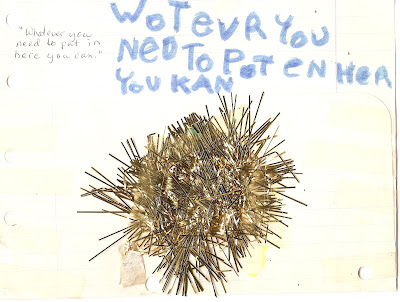 "Whatever you
need to put in
here you can."
WOTEVR YOU
NEED TO POT EN HER
YOU KAN